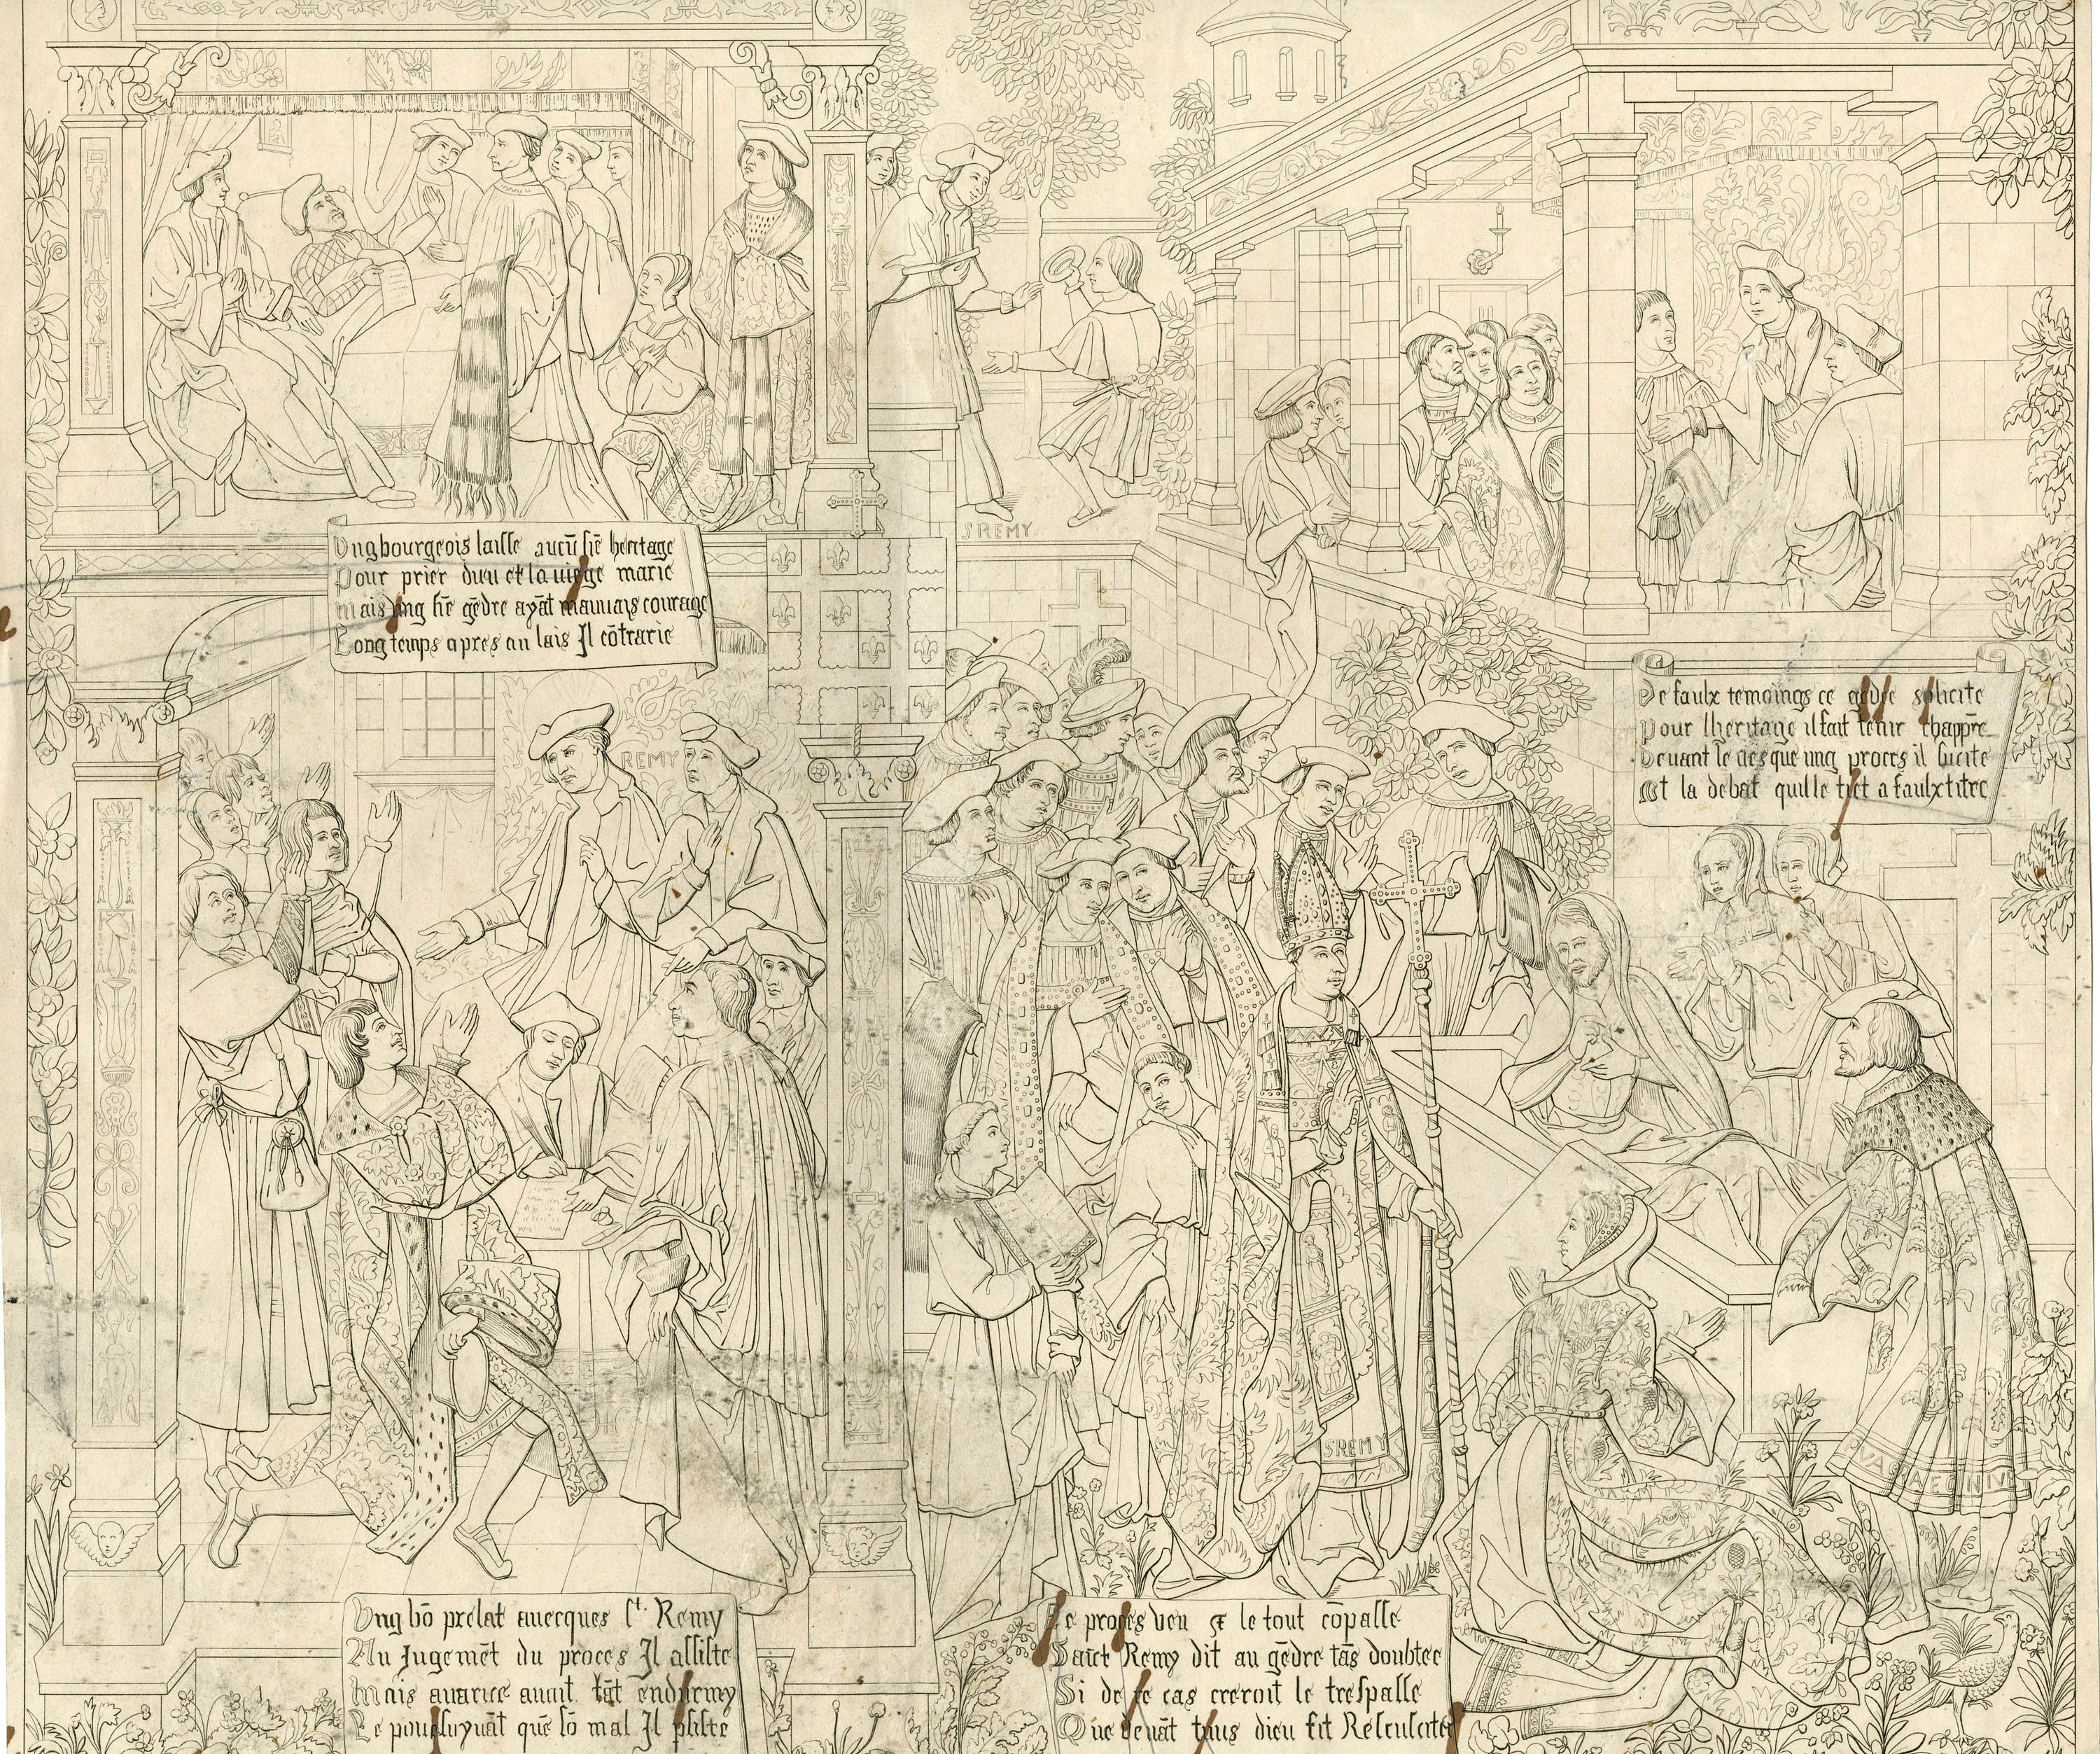 Ung bourgeois laisse aucū siē heritage
Pour prier dieu et la vierge marie
mais ung siē gēdre ayāt mauuays courage
Long temps apres au lais Il cōtrarie
S REMY
De faulx temoings ce gēdre solicite
pour lheritage il fait tenir chappr̄e
Deuant le ung proces il sucite
Et la debat quil le tiēt a faulx titre
REMY
S REMY
Ung bō prelat auecques St. Remy
Au Jugemēt du proces Il assiste
Mais auarice auait tāt endurmy
Le pousuyuāt quē sō mal Il psiste
Le proces veu & le tout cōpasse
Saīct Remy dit au gēdre tās doubtee
Si de ce cas creroit le trespasse
Que deuāt tous dieu fit Resusciter